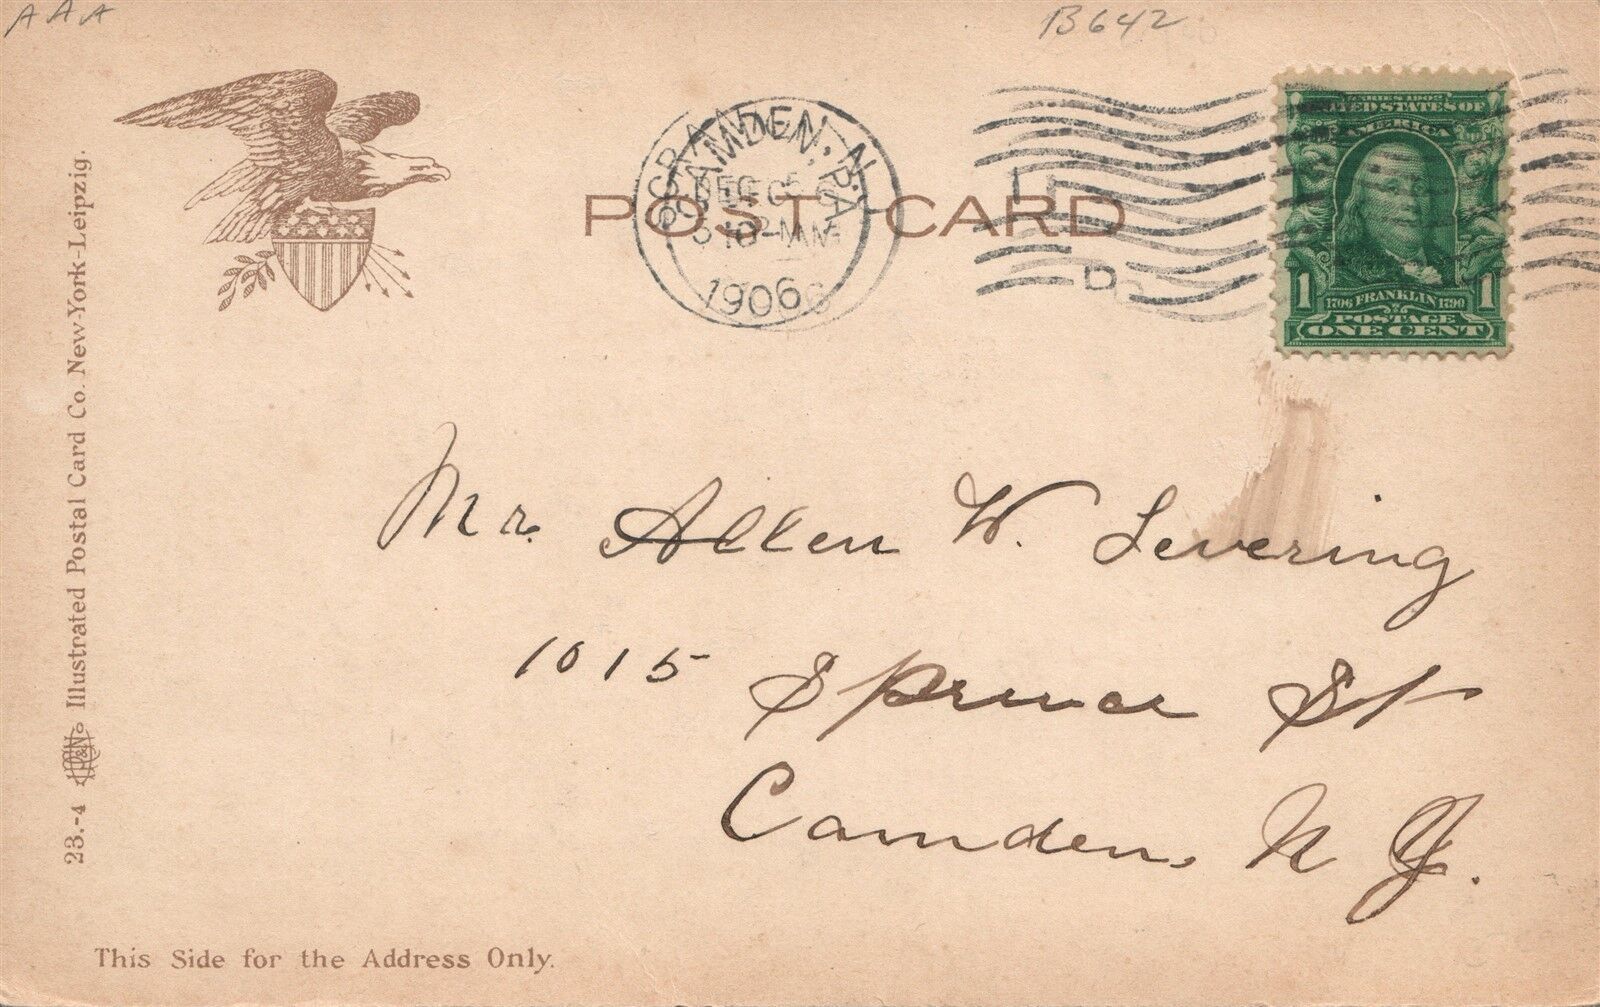 AAA
B642
POST CARD
1906
SERIES 1902
UNITED STATES OF
AMERICA
1 1706 FRANKLIN 1790 1
POSTAGE
ONE CENT
Mr. Allen W. Levering
1015 Spruce St
Camden, N J.
23.-4 Illustrated Postal Card Co. New-York-Leipzig.
This Side for the Address Only.